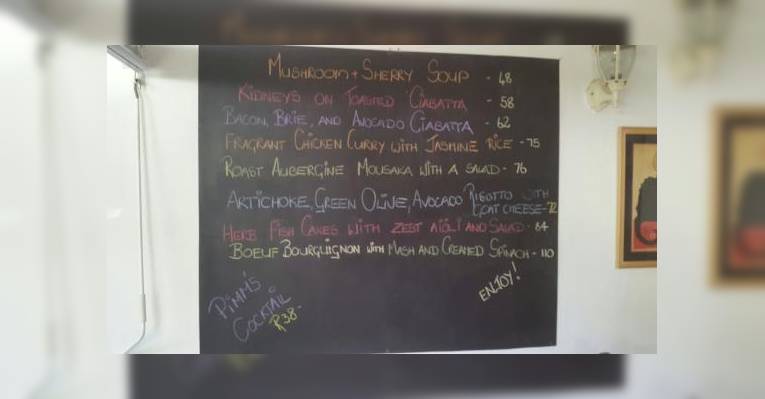 MUSHROOM + SHERRY SOUP - 48
KIDNEYS ON TOASTED CIABATTA - 58
BACON, BRIE, AND AVOCADO CIABATTA - 62
FRAGRANT CHICKEN CURRY WITH JASMINE RICE - 75
ROAST AUBERGINE MOUSAKA WITH A SALAD - 76
ARTICHOKE, GREEN OLIVE, AVOCADO RISOTTO WITH
GOAT CHEESE - 72
HERB FISH CAKES WITH ZEST AIOLI AND SALAD - 64
BOEUF BOURGUIGNON WITH MASH AND CREAMED SPINACH - 110
ENJOY!
PIMM'S
COCKTAIL
R38-